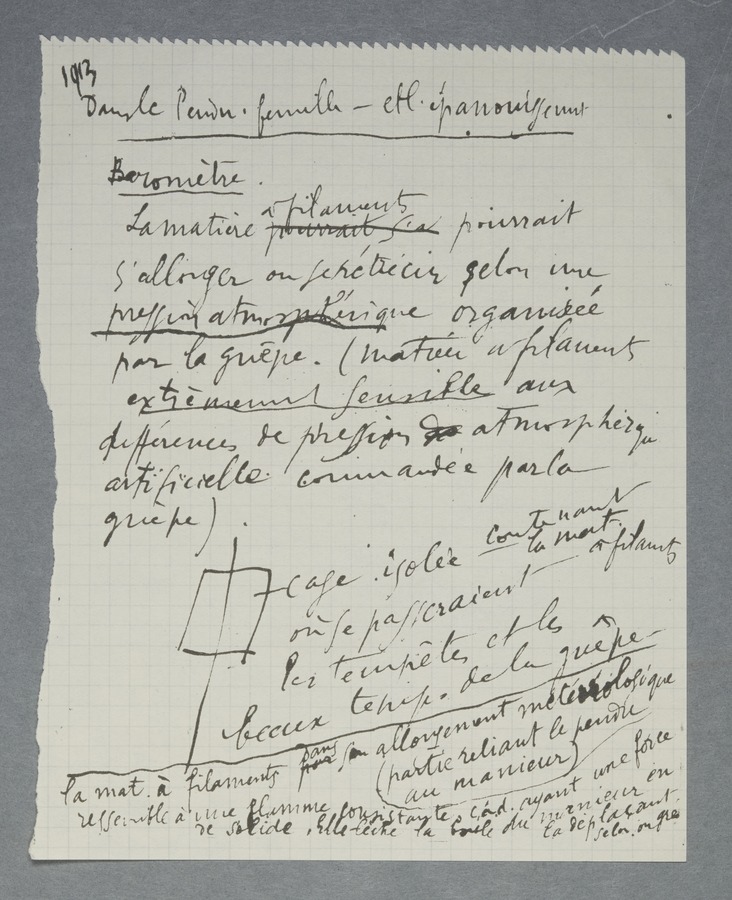 1913
Dans le Pendu. femelle – et l'épanouissement
Baromètre.
La matière à filaments pourrait s'a pourrait
s'allonger ou se rétrécir selon une
pression atmosphérique organisée
par la guêpe. (matière à filaments
extrêmement sensible aux
différences de pression de atmosphériqu
artificielle commandée par la
guêpe).
cage isolée contenant la mat. à filamts
où se passeraient
les tempêtes et les
beaux temps. de la guêpe
la mat. à filaments dans son allongement météréologique
(partie reliant le pendu
au manieur)
ressemble à une flamme consistante, c.à.d. ayant une force
de solide. Elle lèche la boule du manieur en
la déplaçant
selon son gré